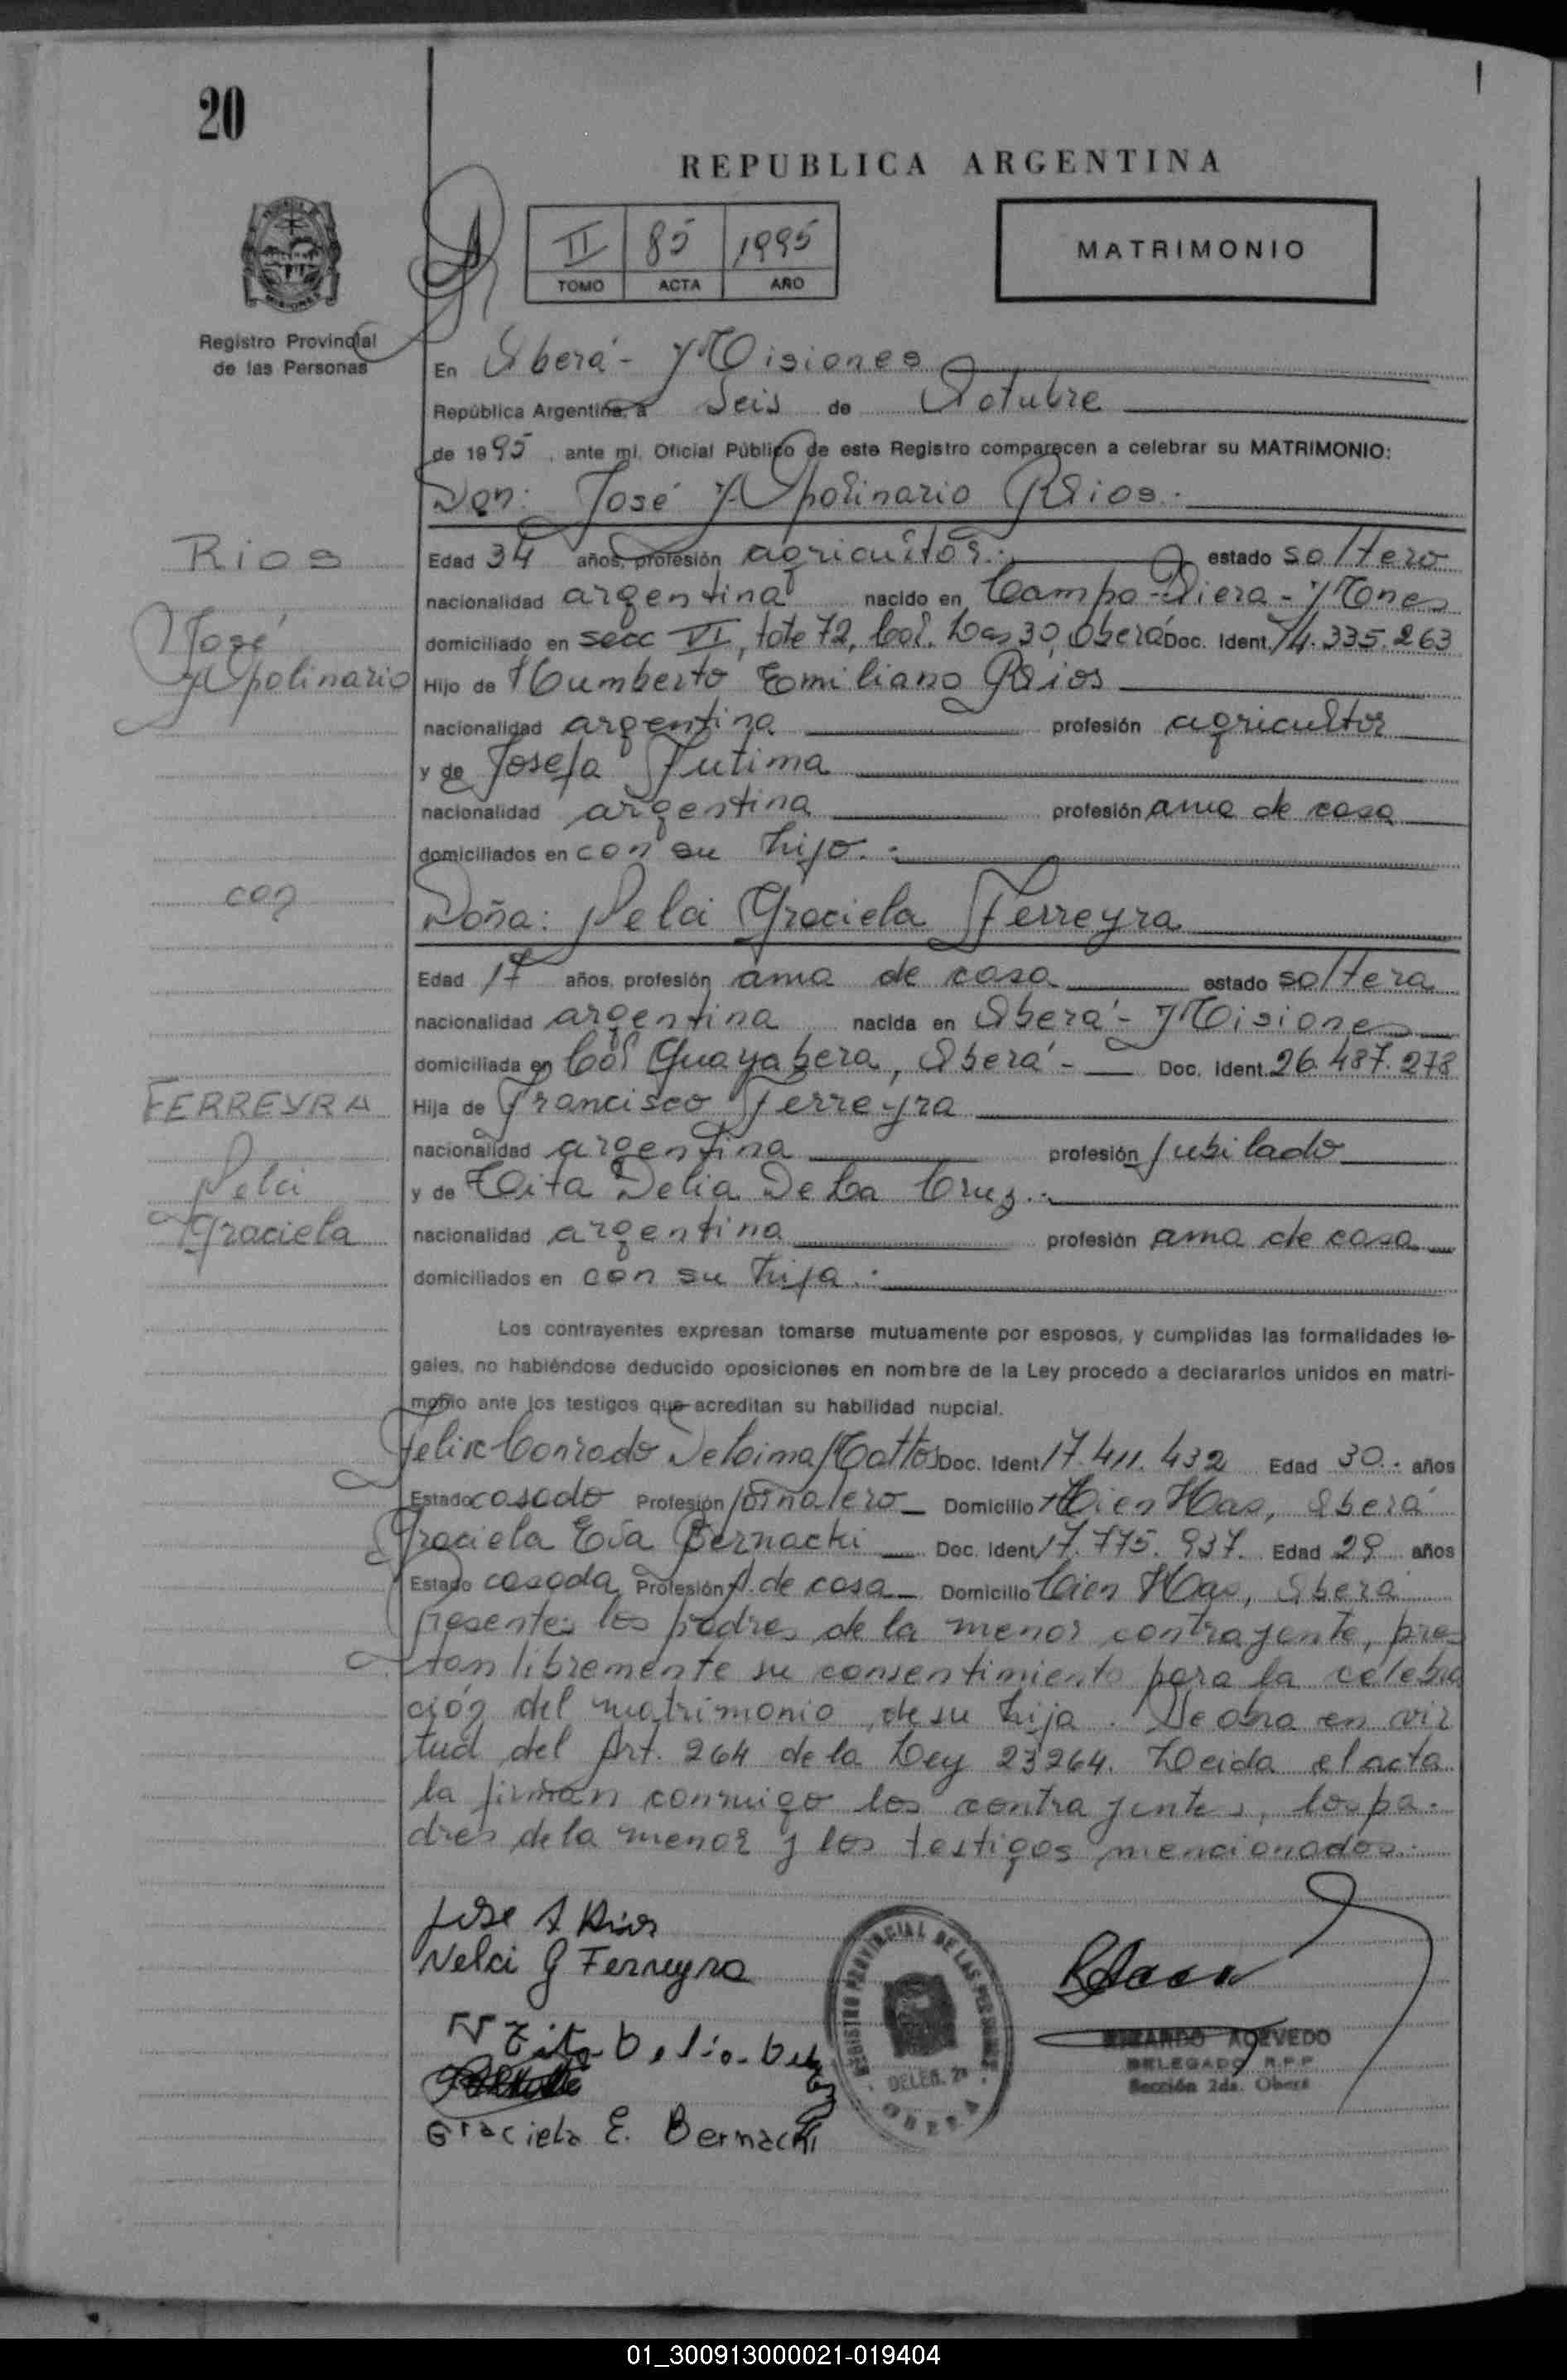 20
REPUBLICA ARGENTINA
II 85 1995
TOMO ACTA AÑO
MATRIMONIO
Registro Provincial
de las Personas
En Oberá - Misiones
República Argentina, a Seis de Octubre
de 1995, ante mi, Oficial Público de este Registro comparecen a celebrar su MATRIMONIO:
Don: José Apolinario Rios.-
Rios
Edad 34 años, profesión agricultor.- estado soltero
nacionalidad argentina nacido en Campo Viera - Mnes
José
domiciliado en secc VI, lote 72, Col. Las 30, Oberá Doc. Ident. 14.335.263
Apolinario
Hijo de Humberto Emiliano Rios
nacionalidad argentina profesión agricultor
y de Josefa
nacionalidad argentina profesión ama de casa
domiciliados en con su hijo.-
con
Doña: Nelci Graciela Ferreyra
Edad 17 años, profesión ama de casa estado soltera
nacionalidad argentina nacida en Oberá - Misiones
domiciliada en Col Guayabera, Oberá - Doc. Ident. 26.487.278
FERREYRA
Hija de Francisco Ferreyra
nacionalidad argentina profesión jubilado
Nelci
y de Tita Delia De La Cruz.-
Graciela
nacionalidad argentina profesión ama de casa
domiciliados en con su hija.-
Los contrayentes expresan tomarse mutuamente por esposos, y cumplidas las formalidades le-
gales, no habiéndose deducido oposiciones en nombre de la Ley procedo a declararlos unidos en matri-
monio ante los testigos que acreditan su habilidad nupcial.
Felix Conrado De Lima Mattos Doc. Ident 17.411.432 Edad 30.- años
Estado casado Profesión jornalero Domicilio Cien Has, Oberá
Graciela Eva Bernacki Doc. Ident 17.775.937. Edad 29 años
Estado casada Profesión A. de casa Domicilio Cien Has, Oberá
Presentes los padres de la menor contrayente, pres
tan libremente su consentimiento para la celebra
ción del matrimonio de su hija. Se obra en vir
tud del Art. 264 de la Ley 23264. Leida el acta
la firman conmigo los contrayentes, los pa-
dres de la menor y los testigos mencionados.-
Jose A Rios
Nelci G Ferreyra
Tita Delia
Graciela E. Bernacki
REGISTRO PROVINCIAL DE LAS PERSONAS
DELEG. 2ª
OBERA
RICARDO ACEVEDO
DELEGADO R.P.P
Sección 2da. Oberá
01_300913000021-019404